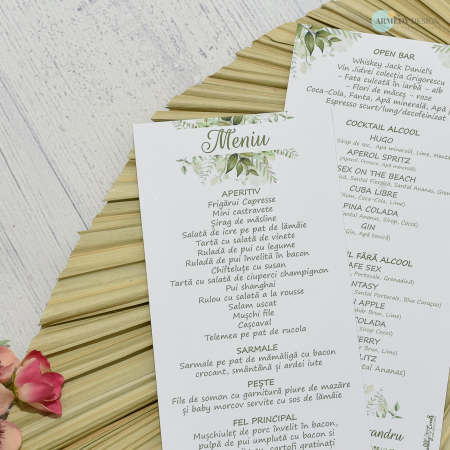 ARMEDY DESIGN
Meniu
APERITIV
Frigărui Capresse
Mini castravete
Șirag de măsline
Salată de icre pe pat de lămâie
Tartă cu salată de vinete
Ruladă de pui cu legume
Ruladă de pui învelită în bacon
Chifteluțe cu susan
Tartă cu salată de ciuperci champignon
Pui shanghai
Rulou cu salată a la rousse
Salam uscat
Mușchi file
Cașcaval
Telemea pe pat de rucola
SARMALE
Sarmale pe pat de mămăligă cu bacon
crocant, smântână și ardei iute
PEȘTE
File de somon cu garnitură piure de mazăre
și baby morcov servite cu sos de lămâie
FEL PRINCIPAL
Mușchiuleț de porc învelit în bacon,
pulpă de pui umplută cu bacon si
cartofi gratinați
OPEN BAR
Whiskey Jack Daniel's
Vin Jidvei colecția Grigorescu
- Fata culcată în iarbă - alb
- Flori de măceș - roze
Coca-Cola, Fanta, Apă minerală, Apă
Espresso scurt/lung/decofeinizat
COCKTAIL ALCOOL
HUGO
Sirop de soc, Apă minerală, Lime,
APEROL SPRITZ
(Aperol, Prosecco, Apă minerală)
SEX ON THE BEACH
Santal Piersici, Santal Ananas,
CUBA LIBRE
Rum, Coca-Cola, Lime)
PINA COLADA
Santal Ananas, Sirop Cocos)
GIN
Gin, Apă tonică)
FĂRĂ ALCOOL
SAFE SEX
Portocale, Grenadină)
FANTASY
Santal Portocale, Blue Curaçao)
APPLE
Brun, Lime)
COLADA
Sirop Cocos)
Brun, Lime)